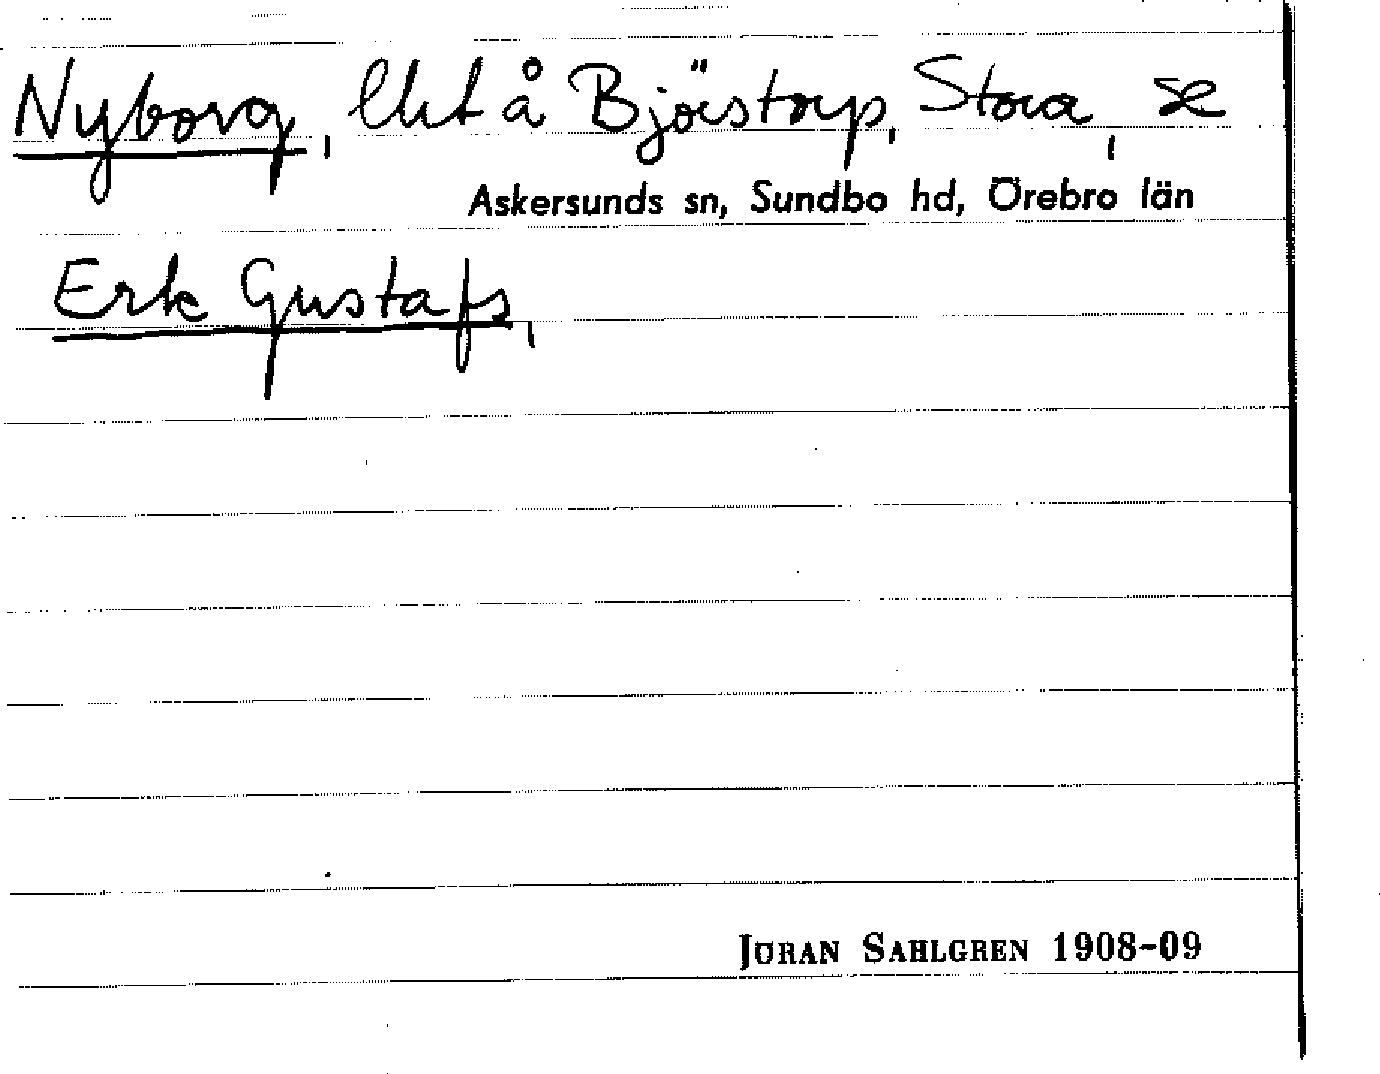 Nyborg, lht å Björstorp, Stora, se
Askersunds sn, Sundbo hd, Örebro län
Erk Gustafs,
JÖRAN SAHLGREN 1908-09